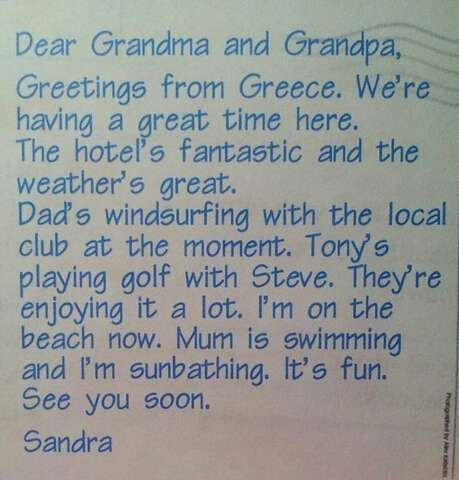 Dear Grandma and Grandpa,
Greetings from Greece. We're
having a great time here.
The hotel's fantastic and the
weather's great.
Dad's windsurfing with the local
club at the moment. Tony's
playing golf with Steve. They're
enjoying it a lot. I'm on the
beach now. Mum is swimming
and I'm sunbathing. It's fun.
See you soon.
Sandra
Photographed by Alex